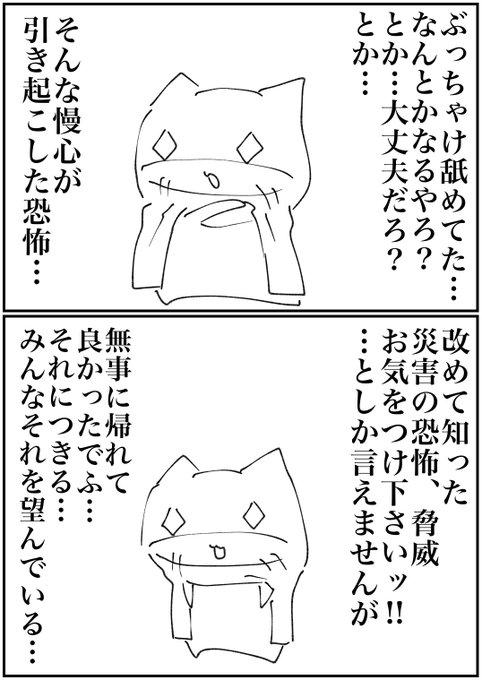 ぶっちゃけ舐めてた…
なんとかなるやろ？
とか…大丈夫だろ？
とか…
そんな慢心が
引き起こした恐怖…
改めて知った
災害の恐怖、脅威
お気をつけ下さいッ!!
…としか言えませんが
無事に帰れて
良かったでふ…
それにつきる…
みんなそれを望んでいる…